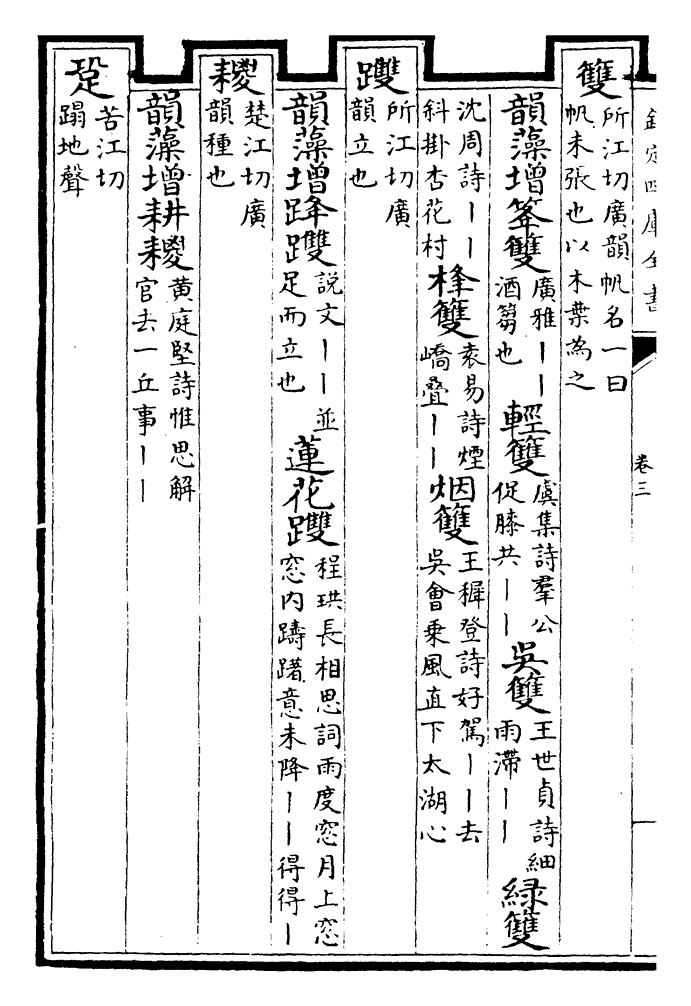 欽定四庫全書
卷三
䉶
所江切廣韻帆名一曰
帆未張也以木葉為之
韻藻增䇨䉶
廣雅丨丨
酒蒭也
輕䉶
虞集詩羣公
促膝共丨丨
吳䉶
王世貞詩細
雨滯丨丨
緑䉶
沈周詩丨丨
斜掛杏花村
栙䉶
袁易詩煙
嶠疊丨丨
烟䉶
王穉登詩好駕丨丨去
吳會乗風直下太湖心
𨇯
所江切廣
韻立也
韻藻增跭𨇯
說文丨丨並
足而立也
蓮花𨇯
程珙長相思詞雨度窓月上窓
窓内躊躇意未降丨丨得得丨
䎫
楚江切廣
韻種也
韻藻增耕䎫
黄庭堅詩惟思解
官去一丘事丨丨
跫
苦江切
蹋地聲